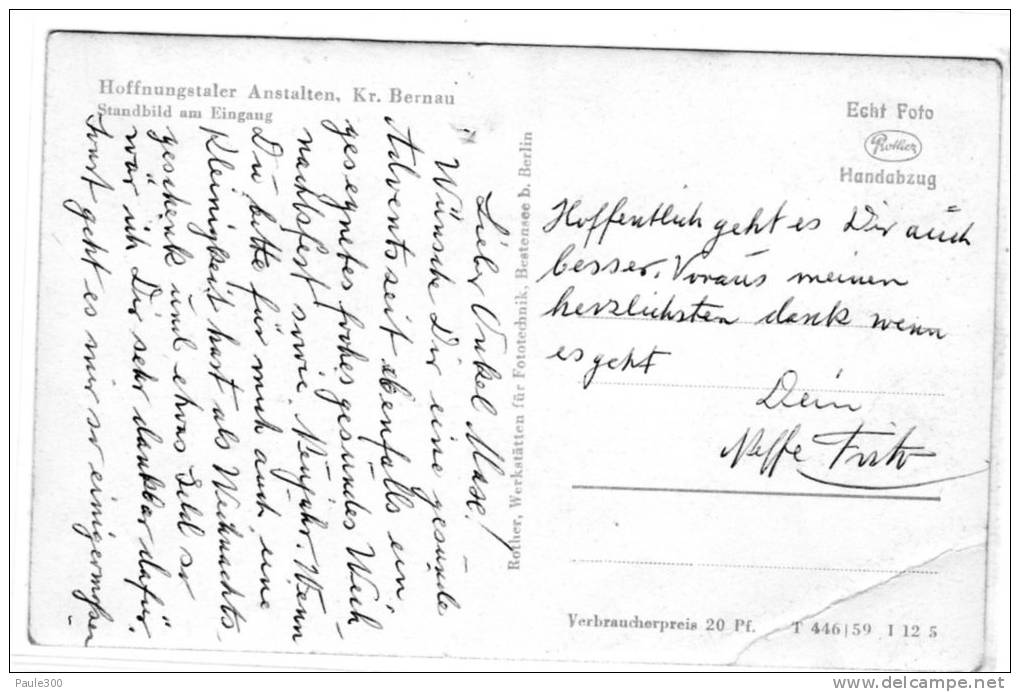 Hoffnungstaler Anstalten, Kr. Bernau
Standbild am Eingang
Lieber Onkel Maxe! -
Wünsche Dir eine gesunde
Adventszeit ebenfalls ein,
gesegnetes frohes gesundes Weih
nachtsfest sowie Neujahr. Wenn
Du bitte für mich auch eine
Kleinigkeit hast als Weihnachts-
geschenk und etwas Geld so
wär ich Dir sehr dankbar dafür.
Sonst geht es mir so einigermaßen
Rother, Werkstätten für Fototechnik, Bestensee b. Berlin
Echt Foto
Rother
Handabzug
Hoffentlich geht es Dir auch
besser. Voraus meinen
herzlichsten dank wenn
es geht
Dein
Neffe Fritz
Verbraucherpreis 20 Pf. T 446|59 I 12 5
Paule300
www.delcampe.net